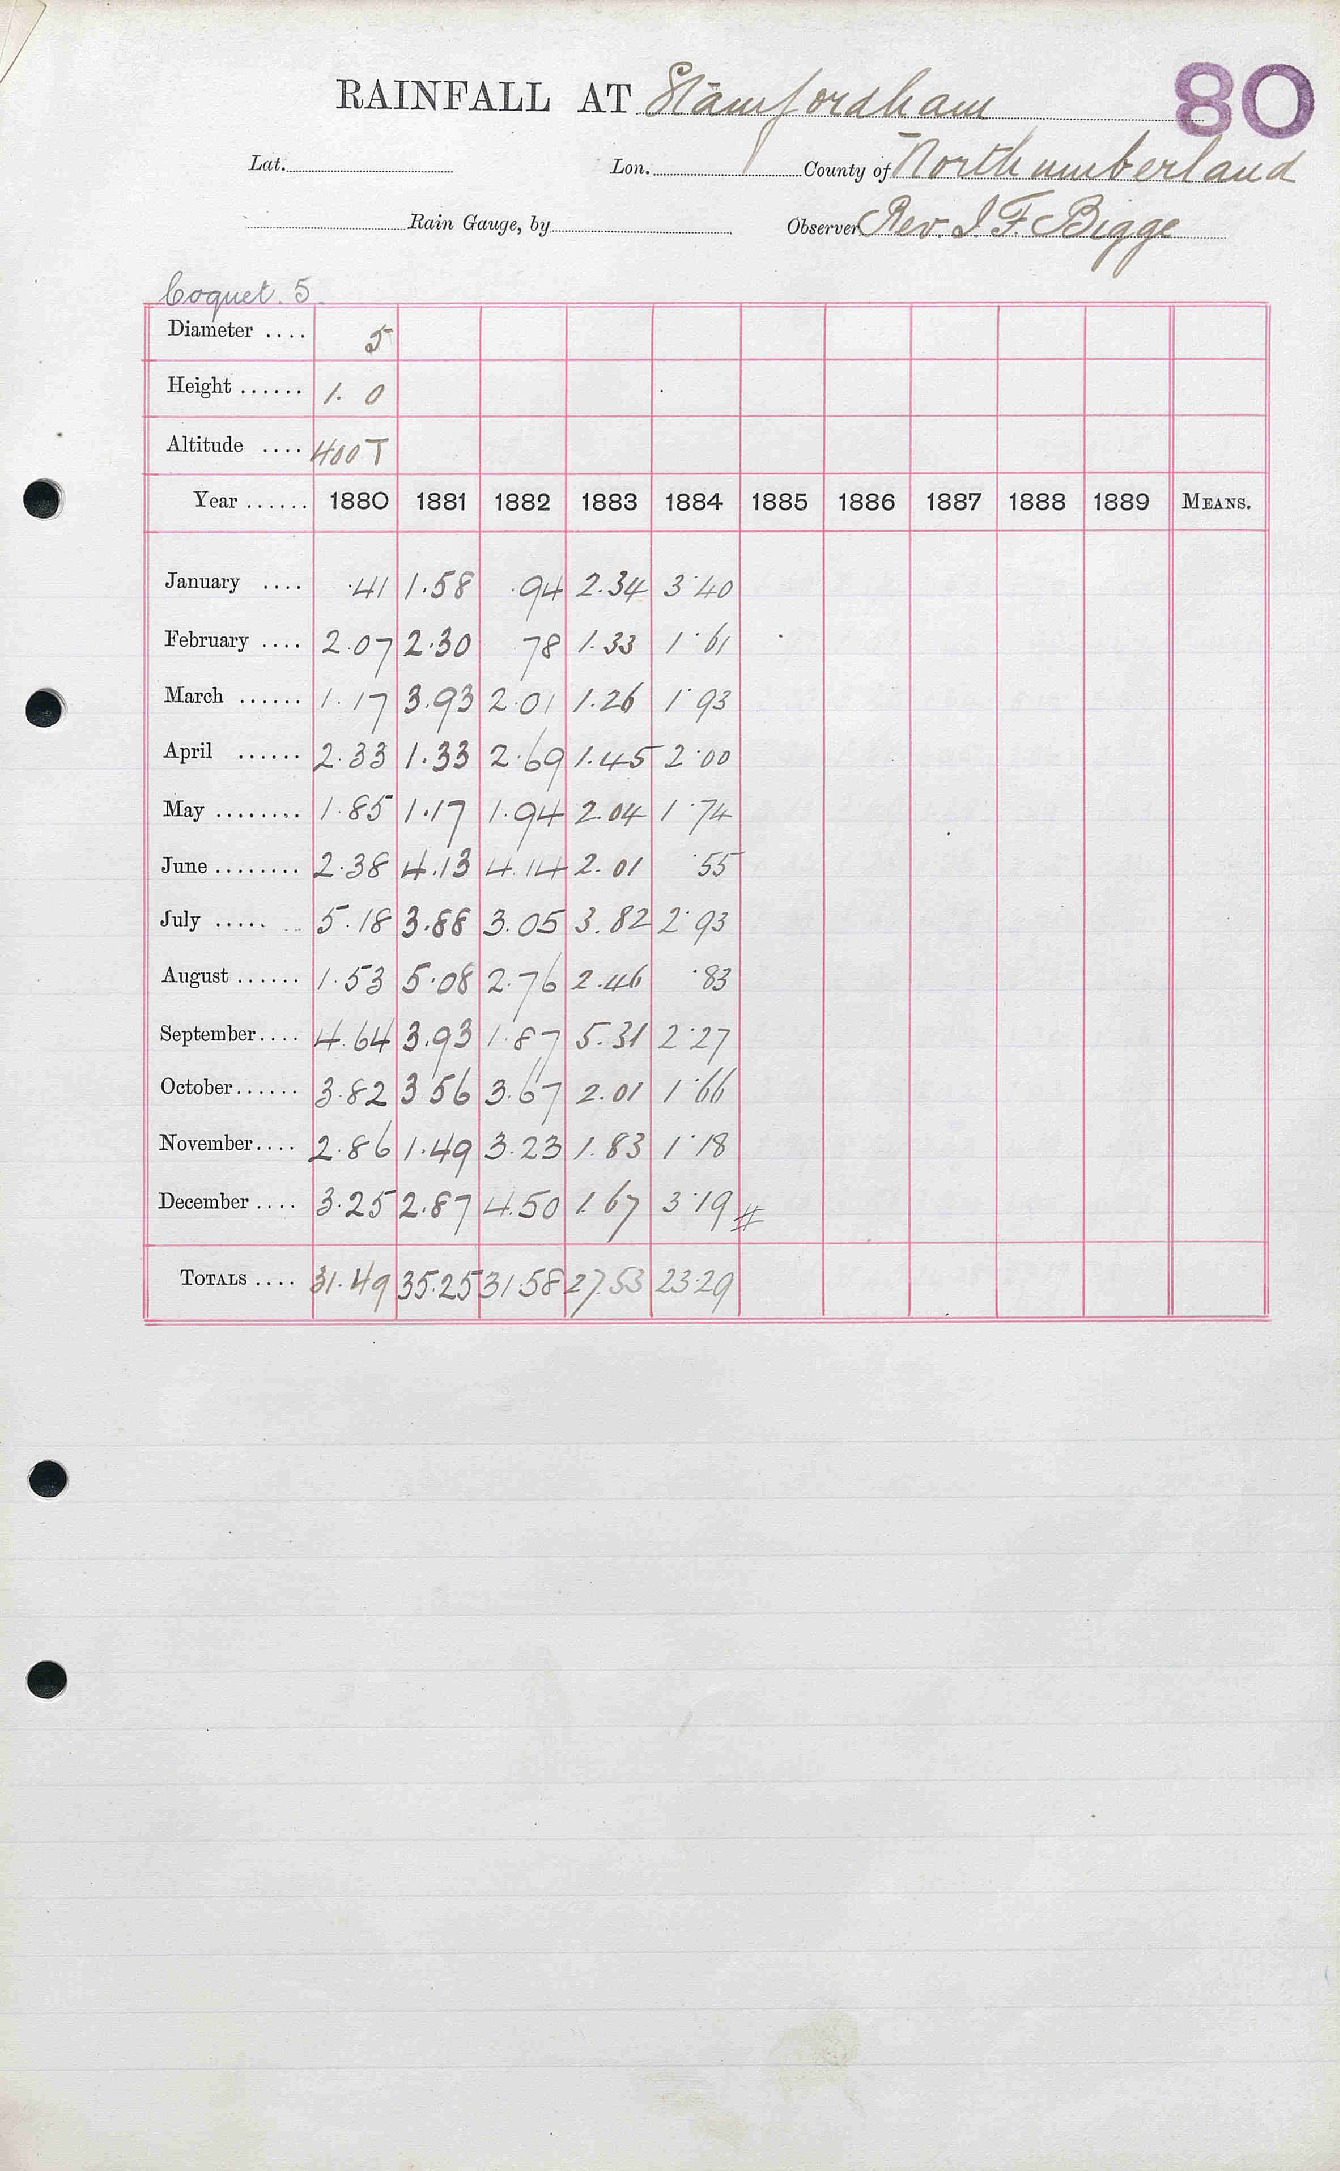 RAINFALL AT Stamfordham 80
Lat. Lon. County of Northumberland
Rain Gauge, by Observer Rev. J. F. Bigge
Coquet. 5.
Diameter .... 5
Height ...... 1. 0
Altitude .... 400 T
Year ...... 1880 1881 1882 1883 1884 1885 1886 1887 1888 1889 MEANS.
January .... ·41 1·58 ·94 2.34 3·40
February .... 2.07 2·30 78 1.33 1·61
March ...... 1.17 3.93 2.01 1.26 1·93
April ...... 2.33 1.33 2.69 1.45 2·00
May ........ 1.85 1.17 1.94 2.04 1·74
June ........ 2.38 4.13 4.14 2.01 ·55
July ..... 5.18 3.88 3.05 3.82 2·93
August ...... 1.53 5·08 2.76 2.46 ·83
September .... 4.64 3.93 1.87 5.31 2·27
October ...... 3.82 3 56 3.67 2.01 1·66
November .... 2.86 1.49 3.23 1.83 1·18
December .... 3.25 2.87 4.50 1.67 3·19 #
TOTALS .... 31.49 35.25 31.58 27.53 23.29